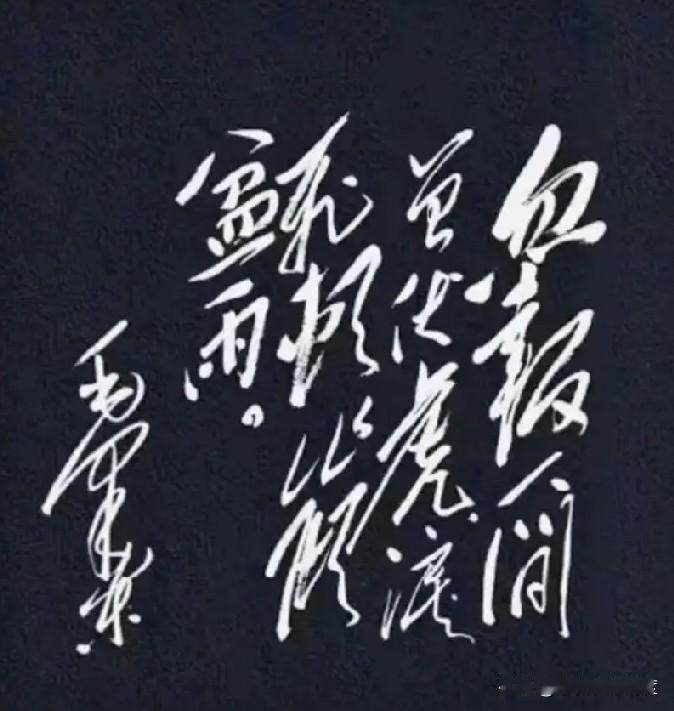 忽報人間
曾伏虎，淚
飛頓作傾
盆雨。
毛澤東